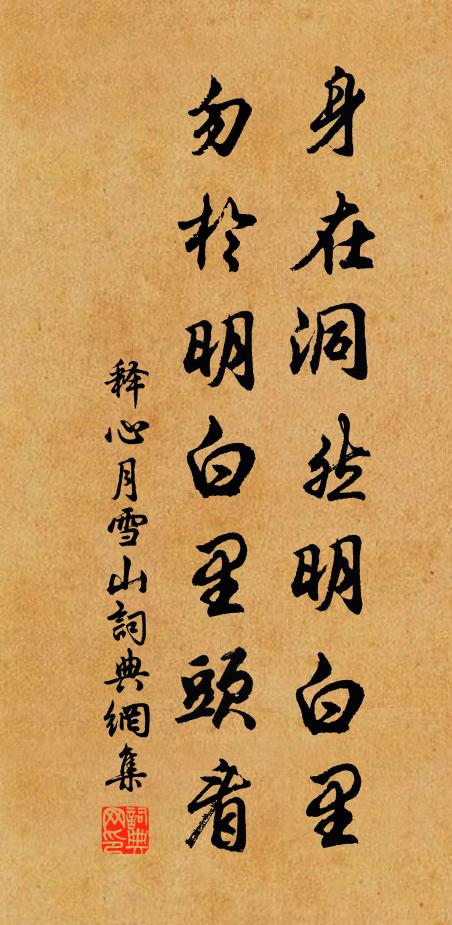 身在洞然明白里
勿於明白里頭看
释心月雪山詞典網集
詞典网印